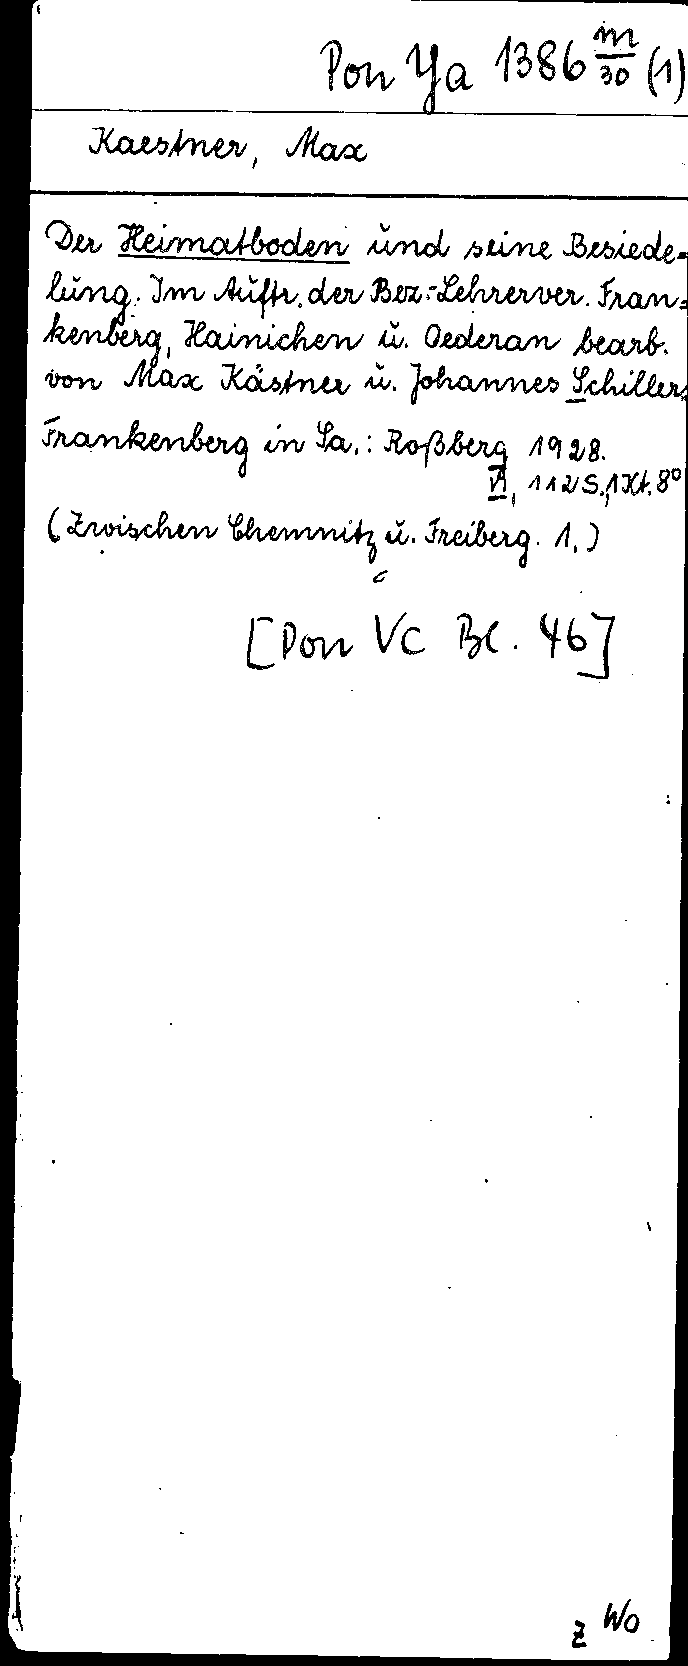 Pon Ya 1386 m/30 (1)
Kaestner, Max
Der Heimatboden und seine Besiede=
lung. Im Auftr. der Bez.-Lehrerver. Fran=
kenberg, Hainichen u. Oederan bearb.
von Max Kästner u. Johannes Schiller.
Frankenberg in Sa.: Roßberg 1928.
VI, 112 S., 1 Kt. 8°
(Zwischen Chemnitz u. Freiberg. 1.)
[Pon VC Bl. 46]
z Wo